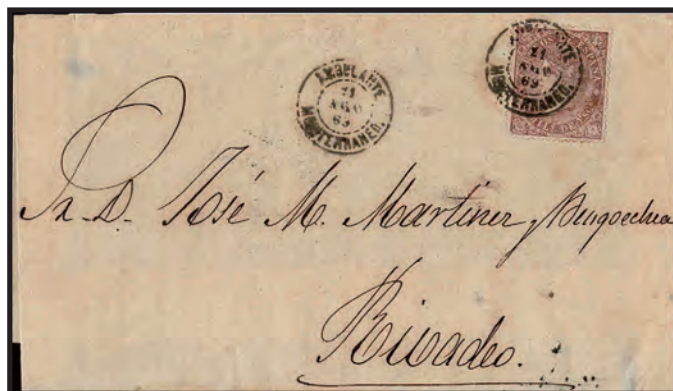 AMBULANTE
21
AGO
69
MEDITERRANEO.
AMBULANTE
21
AGO
69
MEDITERRANEO.
Sr. D. José M. Martinez y Bengoechea
Rivadeo.